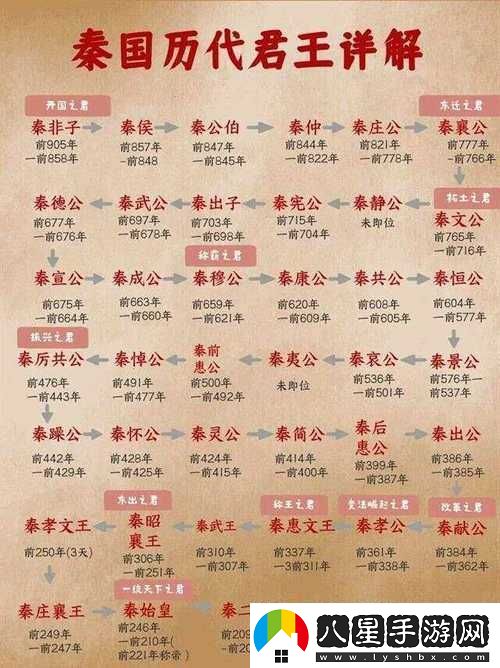 秦国历代君王详解
开国之君 东迁之君
秦非子 秦侯 秦公伯 秦仲 秦庄公 秦襄公
前905年 前857年 前847年 前844年 前821年 前777年
一前858年 -前848 一前845年 一前822年 一前778年 -前766年
拓土之君
秦德公 秦武公 秦出子 秦宪公 秦静公 秦文公
前677年 前697年 前703年 前715年 未即位 前765年
一前676年 一前678年 一前698年 一前704年 一前716年
称霸之君
秦宣公 秦成公 秦穆公 秦康公 秦共公 秦恒公
前675年 前663年 前659年 前620年 前608年 前604年
一前664年 一前660年 一前621年 一前609年 一前605年 一前577年
振兴之君
秦厉共公 秦悼公 秦前惠公 秦夷公 秦哀公 秦景公
前476年 前491年 前500年 未即位 前536年 前576年一
一前443年 一前477年 一前492年 一前501年 前537年
秦躁公 秦怀公 秦灵公 秦简公 秦后惠公 秦出公
前442年 前428年 前424年 前414年 前399年 前386年
一前429年 一前425年 一前415年 一前400年 一前387年 一前385年
东出之君 称王之君 变法崛起之君 改革之君
秦孝文王 秦昭襄王 秦武王 秦惠文王 秦孝公 秦献公
前250年(3天) 前306年 前310年 前337年 前361年 前384年
一前251年 一前307年 一3前311年 一前338年 一前362年
一统天下之君
秦庄襄王 秦始皇 秦二
前249年 前246年
一前247年 一前210年(
前221年称帝)
八星手游网
www.lyshbx.com